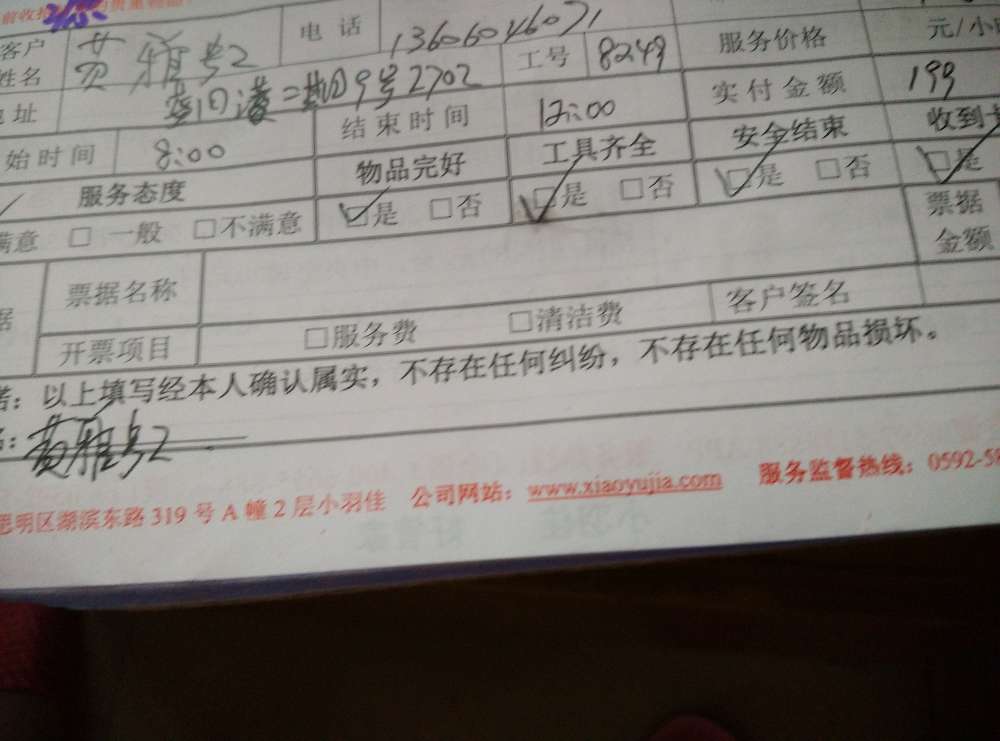 客户姓名 黄雅红 电话 13606046071 服务价格 元/小
地址 二期9号2702 工号 8249 实付金额 199
始时间 8:00 结束时间 12:00
服务态度 物品完好 工具齐全 安全结束 收到
满意 □ 一般 □不满意 □是 □否 □是 □否 □是 □否 □是
票据名称 票据金额
开票项目 □服务费 □清洁费 客户签名
诺:以上填写经本人确认属实,不存在任何纠纷,不存在任何物品损坏。
黄雅红
思明区湖滨东路319号A幢2层小羽佳 公司网站:www.xiaoyujia.com 服务监督热线:0592-58